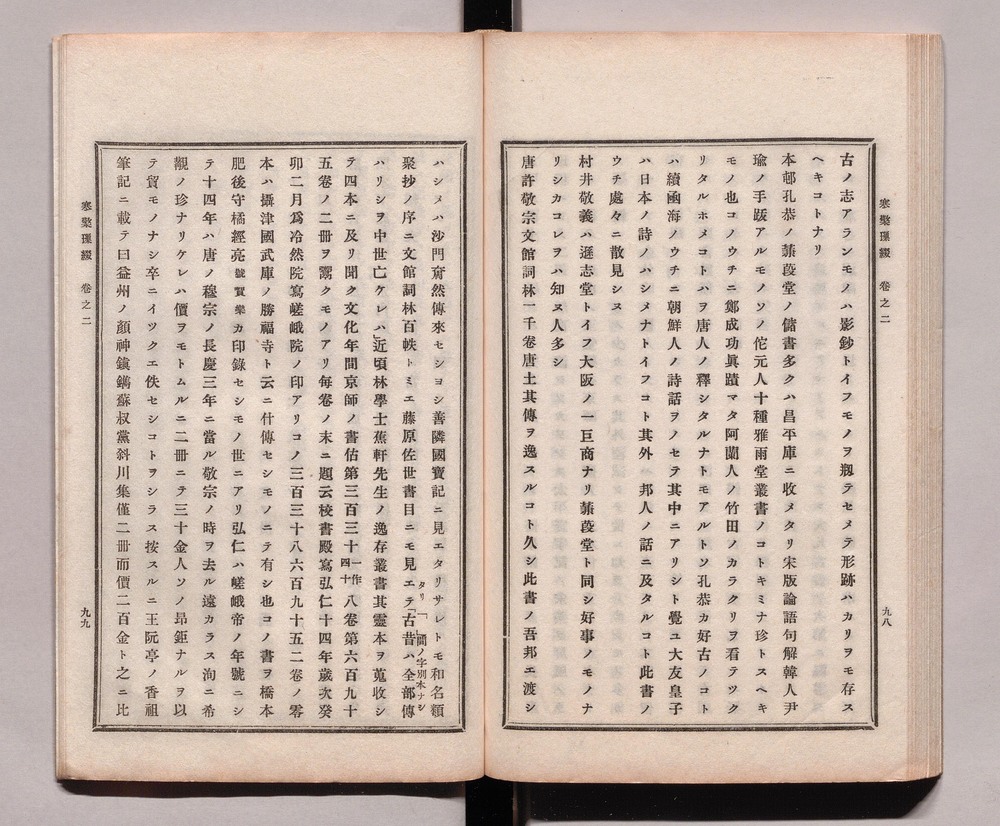 寒檠璅綴 卷之二
九八
古ノ志アランモノハ影鈔トイフモノヲ翫テセメテ形跡ハカリヲモ存ス
ヘキコトナリ
本邨孔恭ノ蒹葭堂ノ儲書多クハ昌平庫ニ收メタリ宋版論語句解韓人尹
瑜ノ手跋アルモノソノ佗元人十種雅雨堂叢書ノコトキミナ珍トスヘキ
モノ也コノウチニ鄭成功眞蹟マタ阿蘭人ノ竹田ノカラクリヲ看テツク
リタルホメコトハヲ唐人ノ釋シタルナトモアルトソ孔恭カ好古ノコト
ハ續國海ノウチニ朝鮮人ノ詩話ヲノセテ其中ニアリシト覺ユ大友皇子
ハ日本ノ詩ノハシメナトイフコト其外ハ邦人ノ話ニ及タルコト此書ノ
ウチ處々ニ散見シヌ
村井敬義ハ遜志堂トイフ大阪ノ一巨商ナリ蒹葭堂ト同シ好事ノモノナ
リシカコレヲハ知ヌ人多シ
唐許敬宗文館詞林一千卷唐土其傳ヲ逸スルコト久シ此書ノ吾邦エ渡シ
ハシメハ沙門奝然傳來セシヨシ善隣國寶記ニ見エタリサレトモ和名類
聚抄ノ序ニ文館詞林百帙トミエ藤原佐世書目ニモ見エテ「古昔ハ全部傳
タリ「 謂ノ字別本ナシ
ハリシヲ中世亡ケレハ」近頃林學士蕉軒先生ノ逸存叢書其靈本ヲ蒐收シ
テ四本ニ及リ聞ク文化年間京師ノ書估第三百三十一作四十八卷第六百九十
五卷ノ二冊ヲ鬻クモノアリ每卷ノ末ニ題云校書殿寫弘仁十四年歲次癸
卯二月爲冷然院寫嵯峨院ノ印アリコノ三百三十八六百九十五二卷ノ零
本ハ攝津國武庫ノ勝福寺ト云ニ什傳セシモノニテ有シ也コノ書ヲ橋本
肥後守橘經亮號賀樂カ印錄セシモノ世ニアリ弘仁ハ嵯峨帝ノ年號ニシ
テ十四年ハ唐ノ穆宗ノ長慶三年ニ當ル敬宗ノ時ヲ去ル遠カラス洵ニ希
觀ノ珍ナリケレハ價ヲモトムルニ二冊ニテ三十金人ソノ昂鉅ナルヲ以
テ貿モノナシ卒ニイツクエ佚セシコトヲシラス按スルニ王阮亭ノ香祖
筆記ニ載テ曰益州ノ顏神鎭鐫蘇叔黨斜川集僅二冊而價二百金ト之ニ比
寒檠璅綴 卷之二
九九